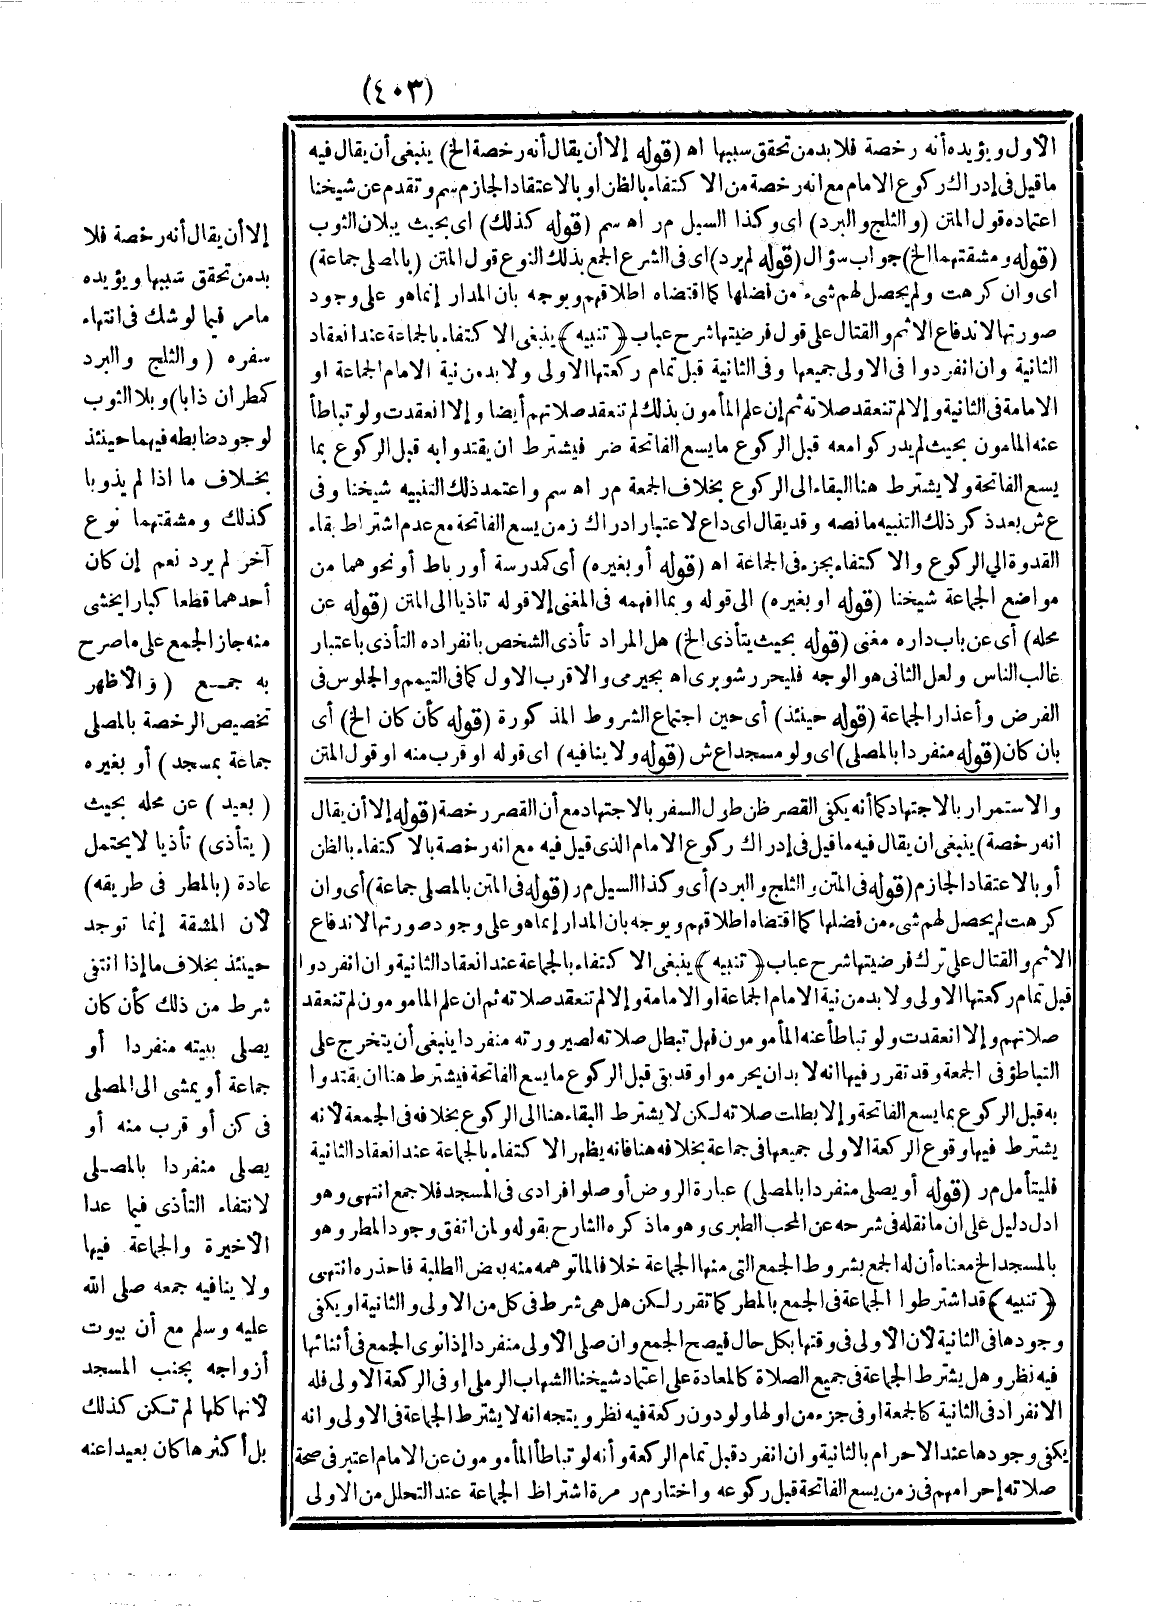 (٤٠٣)
الاول ويؤيده أنه رخصة فلابد من تحقق سببها اه (قوله إلا أن يقال أنه رخصة الخ) ينبغى أن يقال فيه
ماقيل فى إدراك ركوع الامام مع انه رخصة من الاكتفاء بالظن او بالاعتقاد الجازم سم وتقدم عن شيخنا
اعتماده قول المتن (والثلج والبرد) اى وكذا السيل م ر اه سم (قوله كذلك) اى بحيث يبلان الثوب
(قوله ومشقتهما الخ) جواب سؤال (قوله لم يرد) اى فى الشرع الجمع بذلك النوع قول المتن (بالمصلى جماعة)
اى وان كرهت ولم يحصل لهم شىء من فضلها كما اقتضاه اطلاقهم ويوجه بان المدار إنما هو على وجود
صورتها لاندفاع الاثم والقتال على قول فرضيتها شرح عباب ﴿تنبيه﴾ ينبغى الاكتفاء بالجماعة عند انعقاد
الثانية وان انفردوا فى الاولى جميعها وفى الثانية قبل تمام ركعتها الاولى ولا بد من نية الامام الجماعة او
الامامة فى الثانية وإلا لم تنعقد صلاته ثم إن علم المأمون بذلك لم تنعقد صلاتهم أيضا وإلا انعقدت ولو تباطأ
عنه المأمون بحيث لم يدركوا معه قبل الركوع ما يسع الفاتحة ضر فيشترط ان يقتدوا به قبل الركوع بما
يسع الفاتحة ولا يشترط هنا البقاء الى الركوع بخلاف الجمعة م ر اه سم واعتمد ذلك التنبيه شيخنا وفى
ع ش بعد ذكر ذلك التنبيه مانصه وقد يقال اى داع لاعتبار ادراك زمن يسع الفاتحة مع عدم اشتراط بقاء
القدوة الي الركوع والاكتفاء بجزء فى الجماعة اه (قوله أو بغيره) أى كمدرسة أو رباط أو نحوهما من
مواضع الجماعة شيخنا (قوله او بغيره) الى قوله وبما افهمه فى المغنى إلا قوله تاذيا الى المتن (قوله عن
محله) أى عن باب داره مغنى (قوله بحيث يتأذى الخ) هل المراد تأذى الشخص بانفراده التأذى باعتبار
غالب الناس ولعل الثانى هو الوجه فليحرر شوبرى اه بجيرمى والاقرب الاول كما فى التيمم والجلوس فى
الفرض وأعذار الجماعة (قوله حينئذ) أى حين اجتماع الشروط المذكورة (قوله كأن كان الخ) أى
بان كان (قوله منفردا بالمصلى) اى ولو مسجدا ع ش (قوله ولا ينافيه) اى قوله او قرب منه او قول المتن
والاستمرار بالاجتهاد كما أنه يكفى القصر ظن طول السفر بالاجتهاد مع أن القصر رخصة (قوله إلا أن يقال
انه رخصة) ينبغى ان يقال فيه ماقيل فى إدراك ركوع الامام الذى قيل فيه مع انه رخصة بالاكتفاء بالظن
أو بالاعتقاد الجازم (قوله فى المتن والثلج والبرد) أى وكذا السيل م ر (قوله فى المتن بالمصلى جماعة) أى وان
كرهت لم يحصل لهم شىء من فضلها كما اقتضاه اطلاقهم ويوجه بان المدار إنما هو على وجود صورتها لاندفاع
الاثم والقتال على ترك فرضيتها شرح عباب ﴿تنبيه﴾ ينبغى الاكتفاء بالجماعة عند انعقاد الثانية وان انفردوا
قبل تمام ركعتها الاولى ولا بد من نية الامام الجماعة او الامامة وإلا لم تنعقد صلاته ثم ان علم المامومون لم تنعقد
صلاتهم وإلا انعقدت ولو تباطأ عنه المأمومون فهل تبطل صلاته لصيرورته منفردا ينبغى أن يتخرج على
التباطؤ فى الجمعة وقد تقرر فيها انه لا بد ان يحرموا وقد بقى قبل الركوع ما يسع الفاتحة فيشترط هنا ان يقتدوا
به قبل الركوع بما يسع الفاتحة وإلا بطلت صلاته لكن لا يشترط البقاء هنا الى الركوع بخلافه فى الجمعة لانه
يشترط فيها وقوع الركعة الاولى جميعها فى جماعة بخلافه هنا فانه يظهر الاكتفاء بالجماعة عند انعقاد الثانية
فليتأمل م ر (قوله أو يصلى منفردا بالمصلى) عبارة الروض أو صلوا فرادى فى المسجد فلا جمع انتهى وهو
ادل دليل على ان مانقله فى شرحه عن المحب الطبرى وهو ماذكره الشارح بقوله ولمن اتفق وجود المطر وهو
بالمسجد الخ معناه أن له الجمع بشروط الجمع التى منها الجماعة خلافا لما توهمه منه بعض الطلبة فاحذره انتهى
﴿تنبيه﴾ قد اشترطوا الجماعة فى الجمع بالمطر كما تقرر لكن هل هى شرط فى كل من الاولى والثانية او يكفى
وجودها فى الثانية لان الاولى فى وقتها بكل حال فيصح الجمع وان صلى الاولى منفردا إذا نوى الجمع فى أثنائها
فيه نظر وهل يشترط الجماعة فى جميع الصلاة كالمعادة على اعتماد شيخنا الشهاب الرملى او فى الركعة الاولى فله
الانفراد فى الثانية كالجمعة او فى جزء من اولها ولو دون ركعة فيه نظر ويتجه انه لا يشترط الجماعة فى الاولى وانه
يكفى وجودها عند الاحرام بالثانية وان انفرد قبل تمام الركعة وأنه لو تباطأ المأمومون عن الامام اعتبر فى صحة
صلاته إحرامهم فى زمن يسع الفاتحة قبل ركوعه واختار م ر مرة اشتراط الجماعة عند التحلل من الاولى
إلا أن يقال أنه رخصة فلا
بد من تحقق سببها ويؤيده
مامر فيما لو شك فى انتهاء
سفره (والثلج والبرد
كمطر ان ذابا) وبلا الثوب
لوجود ضابطه فيهما حينئذ
بخلاف ما اذا لم يذوبا
كذلك ومشقتهما نوع
آخر لم يرد نعم إن كان
أحدهما قطعا كبارا يخشى
منه جاز الجمع على ما صرح
به جمع (والاظهر
تخصيص الرخصة بالمصلى
جماعة بمسجد) أو بغيره
(بعيد) عن محله بحيث
(يتأذى) تأذيا لا يحتمل
عادة (بالمطر فى طريقه)
لأن المشقة إنما توجد
حينئذ بخلاف ما إذا انتفى
شرط من ذلك كأن كان
يصلى ببيته منفردا أو
جماعة أو يمشى الى المصلى
فى كن أو قرب منه أو
يصلى منفردا بالمصلى
لانتفاء التأذى فيما عدا
الاخيرة والجماعة فيها
ولا ينافيه جمعه صلى الله
عليه وسلم مع أن بيوت
أزواجه بجنب المسجد
لانها كلها لم تكن كذلك
بل أكثرها كان بعيدا عنه